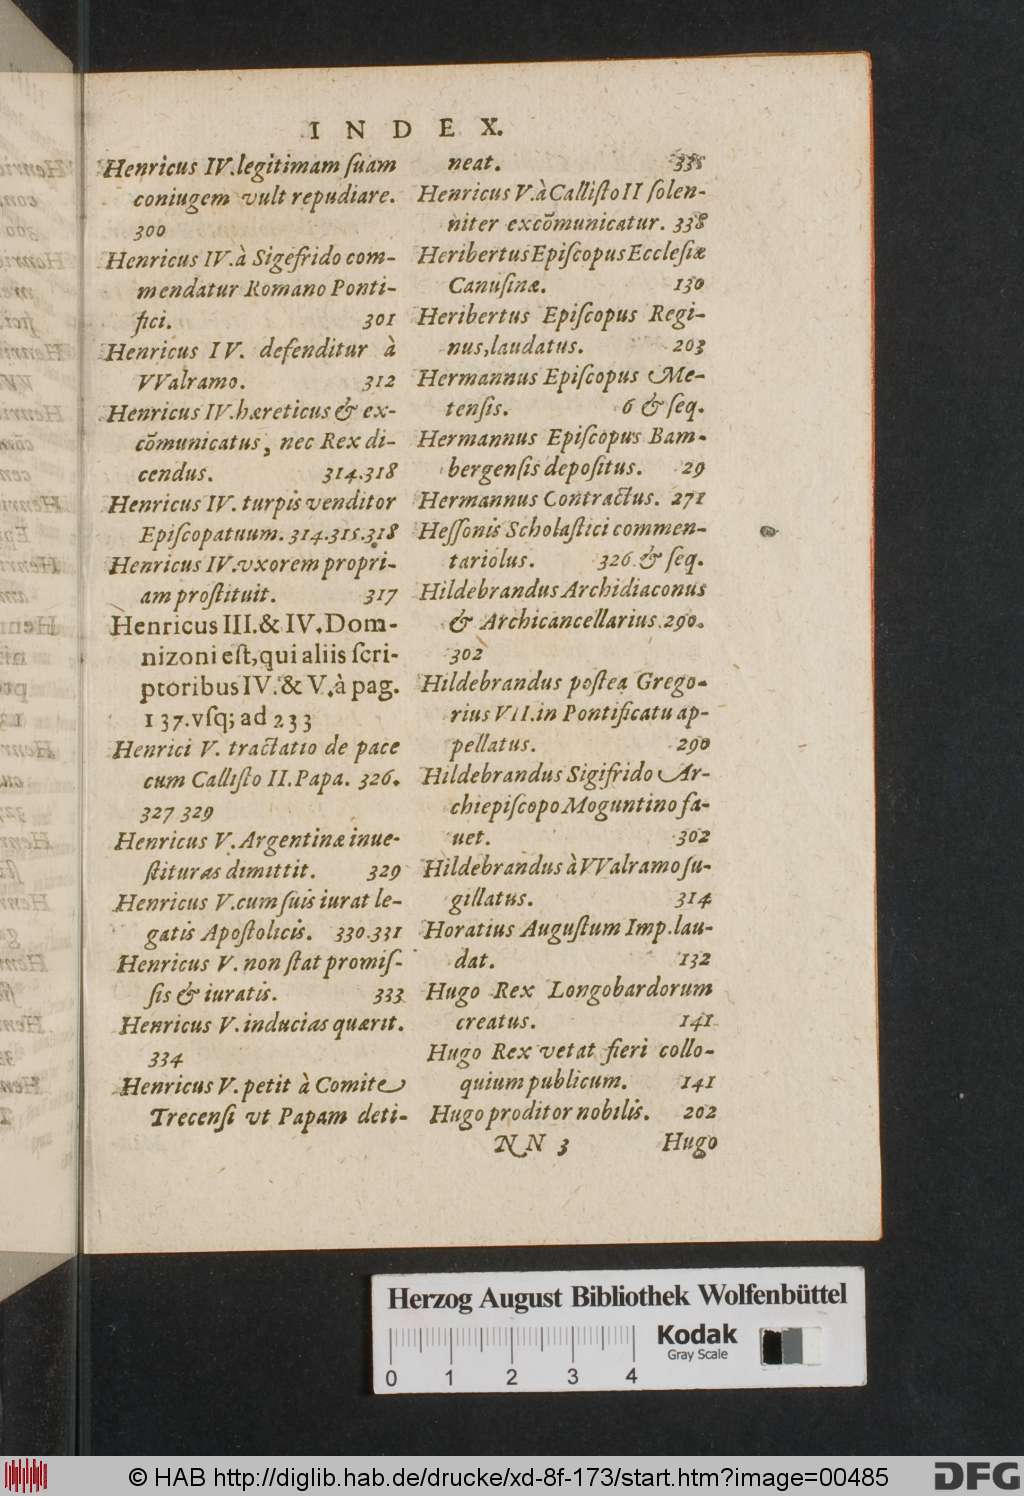 INDEX.
Henricus IV. legitimam ſuam
coniugem vult repudiare.
300
Henricus IV. à Sigefrido com-
mendatur Romano Ponti-
fici. 301
Henricus IV. defenditur à
VValramo. 312
Henricus IV. hæreticus & ex-
cõmunicatus, nec Rex di-
cendus. 314.318
Henricus IV. turpis venditor
Epiſcopatuum. 314.315.318
Henricus IV. vxorem propri-
am proſtituit. 317
Henricus III. & IV. Dom-
nizoni eſt, qui aliis ſcri-
ptoribus IV. & V. à pag.
137. vſq; ad 233
Henrici V. tractatio de pace
cum Calliſto II. Papa. 326.
327 329
Henricus V. Argentinæ inue-
ſtituras dimittit. 329
Henricus V. cum ſuis iurat le-
gatis Apoſtolicis. 330.331
Henricus V. non ſtat promiſ-
ſis & iuratis. 333
Henricus V. inducias quærit.
334
Henricus V. petit à Comite
Trecenſi vt Papam deti-
neat. 335
Henricus V. à Calliſto II ſolen-
niter excõmunicatur. 338
Heribertus Epiſcopus Eccleſiæ
Canuſinæ. 130
Heribertus Epiſcopus Regi-
nus, laudatus. 203
Hermannus Epiſcopus Me-
tenſis. 6 & ſeq.
Hermannus Epiſcopus Bam-
bergenſis depoſitus. 29
Hermannus Contractus. 271
Heſſonis Scholaſtici commen-
tariolus. 326. & ſeq.
Hildebrandus Archidiaconus
& Archicancellarius. 290.
302
Hildebrandus poſtea Grego-
rius VII. in Pontificatu ap-
pellatus. 290
Hildebrandus Sigifrido Ar-
chiepiſcopo Moguntino fa-
uet. 302
Hildebrandus à VValramo ſu-
gillatus. 314
Horatius Auguſtum Imp. lau-
dat. 132
Hugo Rex Longobardorum
creatus. 141
Hugo Rex vetat fieri collo-
quium publicum. 141
Hugo proditor nobilis. 202
NN 3 Hugo
Herzog August Bibliothek Wolfenbüttel
0 1 2 3 4
Kodak
Gray Scale
© HAB http://diglib.hab.de/drucke/xd-8f-173/start.htm?image=00485
DFG